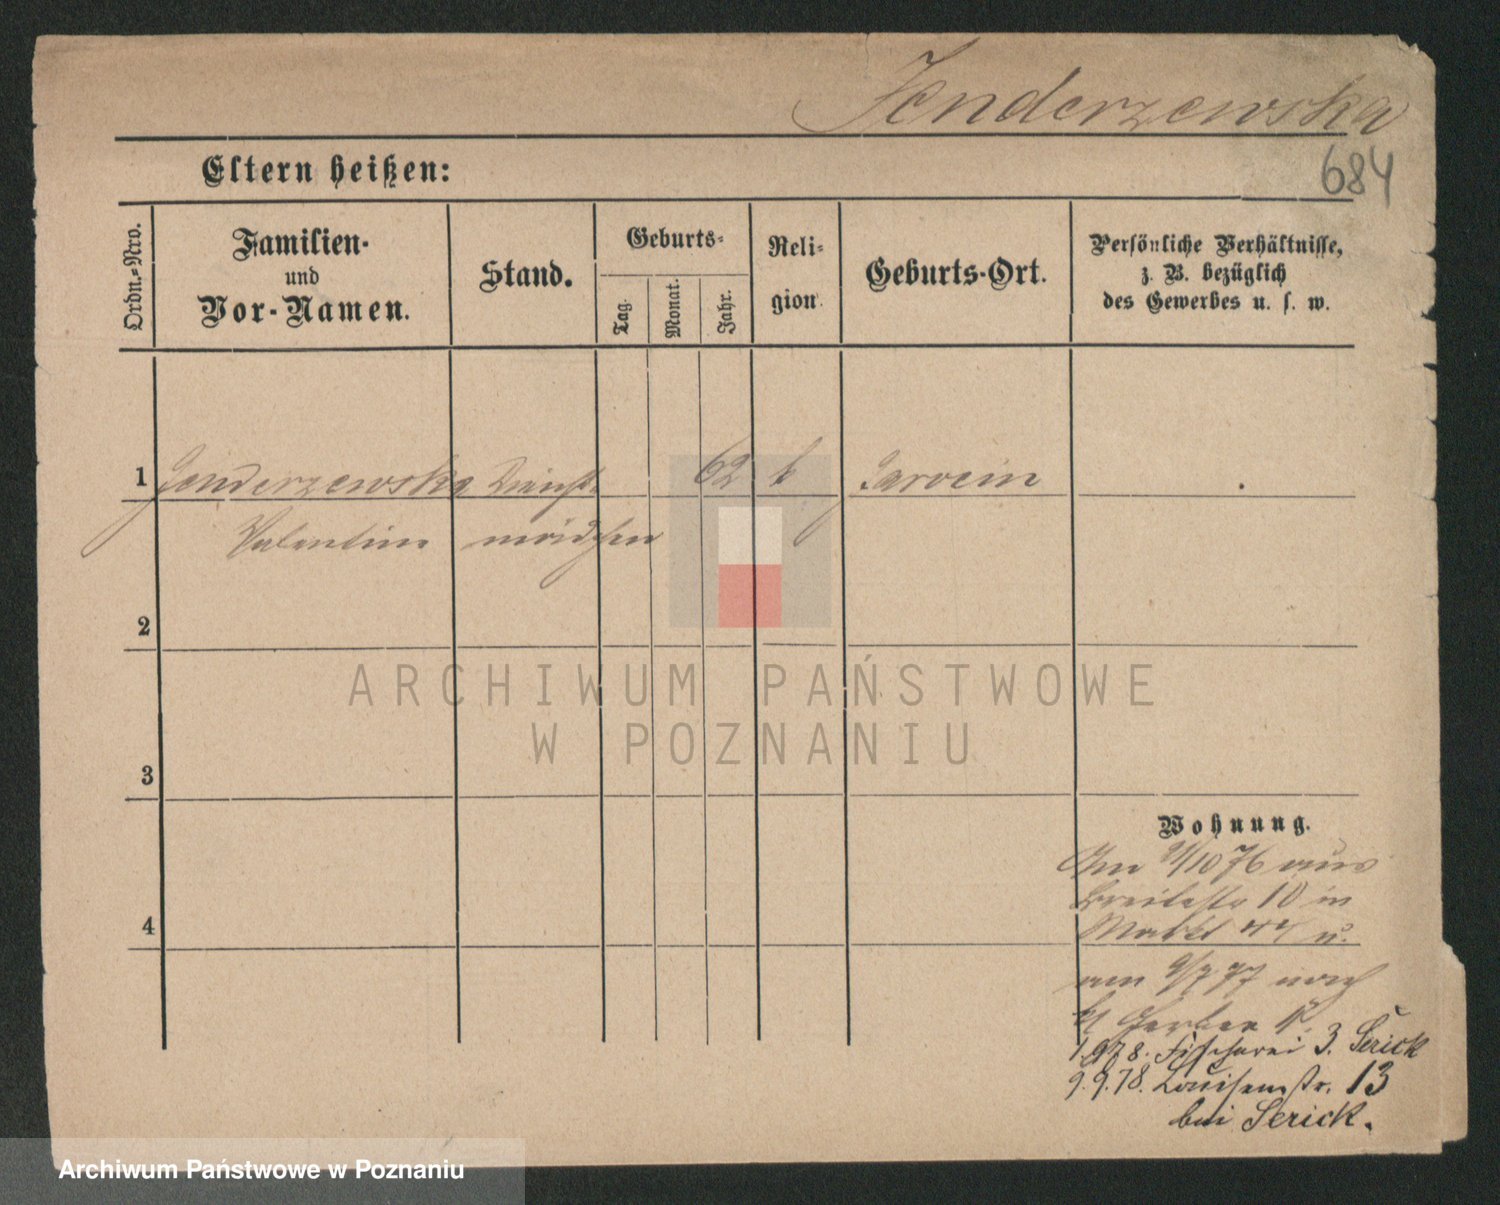 Jenderzewska
684
Eltern heißen:
Ordn.-Nro.
Familien-
und
Vor-Namen.
Stand.
Geburts-
Tag.
Monat.
Jahr.
Reli-
gion.
Geburts-Ort.
Persönliche Verhältnisse,
z. B. bezüglich
des Gewerbes u. s. w.
1 Jenderzewska Dienst- 62 k Jarocin
Valentine mädchen
2
3
4
Wohnung.
Am /10 76 aus
Breitestr 10 in
Markt u.
am 9/7 77 nach
kl Gerber
1.9.78. Fischerei 3. Serick
9.9.78. Louisenstr. 13
bei Serick.
ARCHIWUM PAŃSTWOWE
W POZNANIU
Archiwum Państwowe w Poznaniu